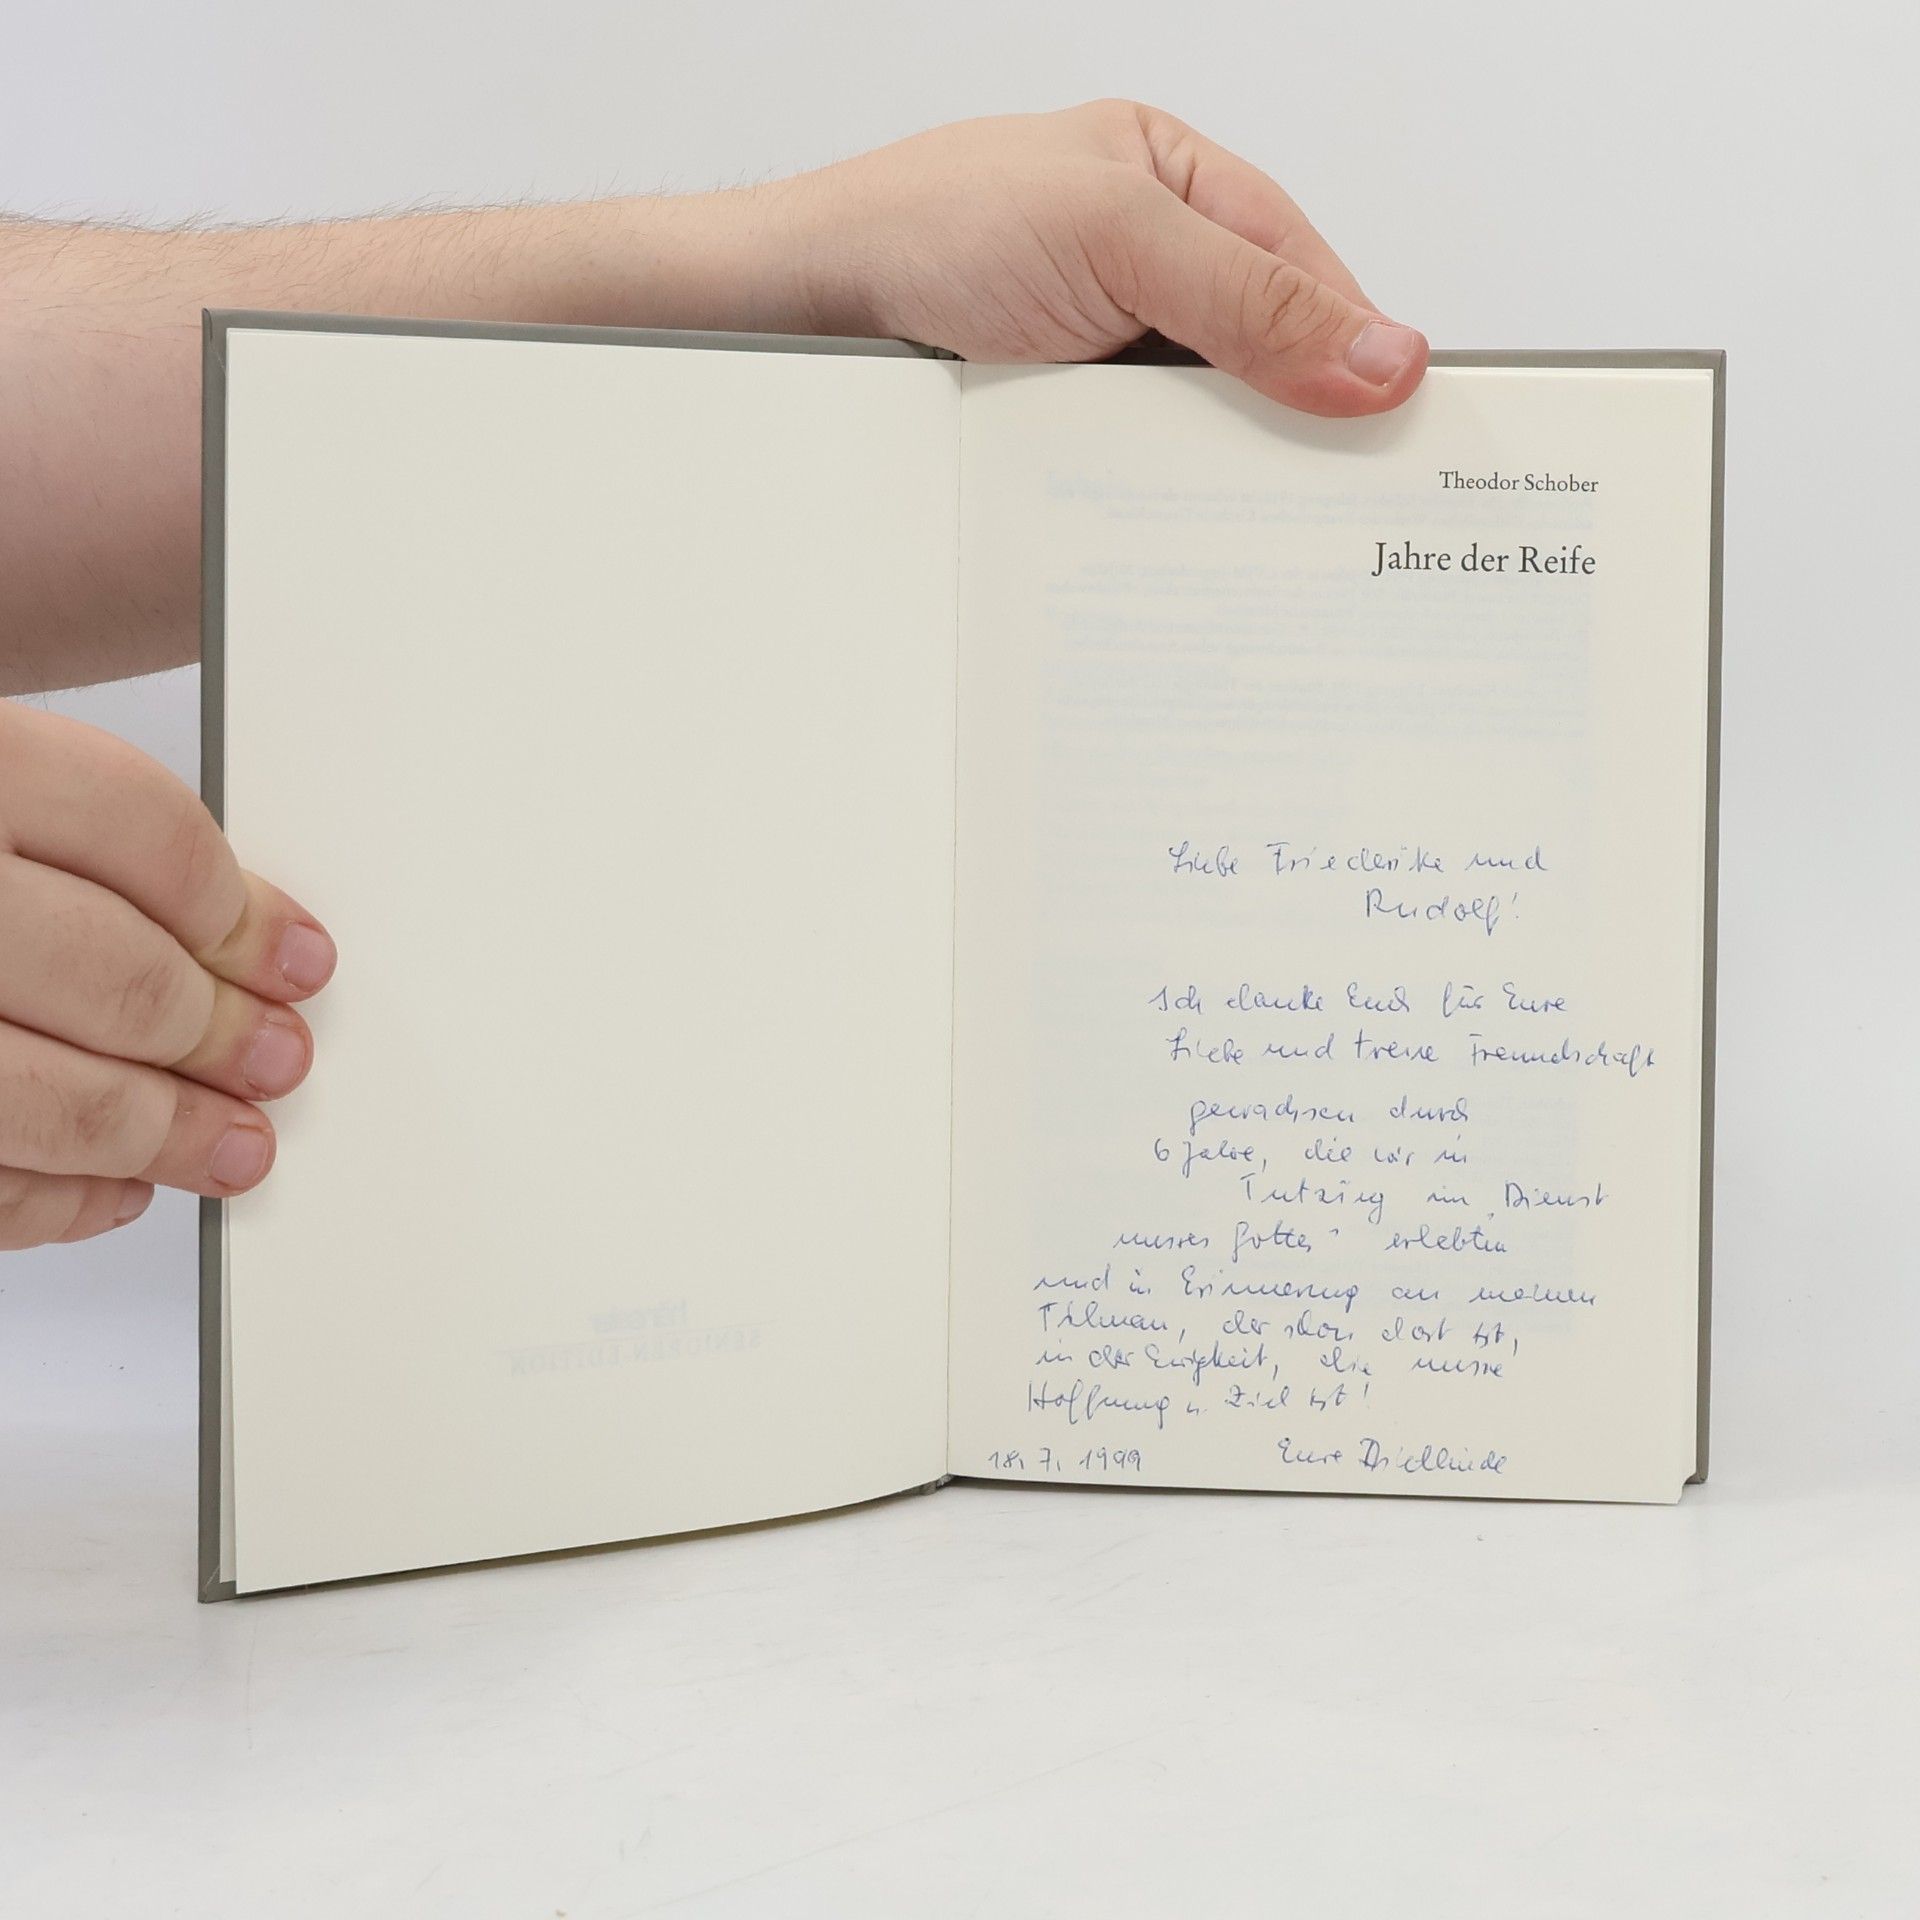 Theodor Schober
Jahre der Reife
Liebe Friederike und
Rudolf!
Ich danke Euch für Eure
Liebe und treue Freundschaft
gewachsen durch
6 Jahre, die wir in
Tutzing im „Dienst
unsres Gottes" erlebten
und in Erinnerung an meinen
Tilman, der schon dort ist,
in der Ewigkeit, die unsre
Hoffnung u. Ziel ist!
18. 7. 1999 Eure
SENIOREN EDITION